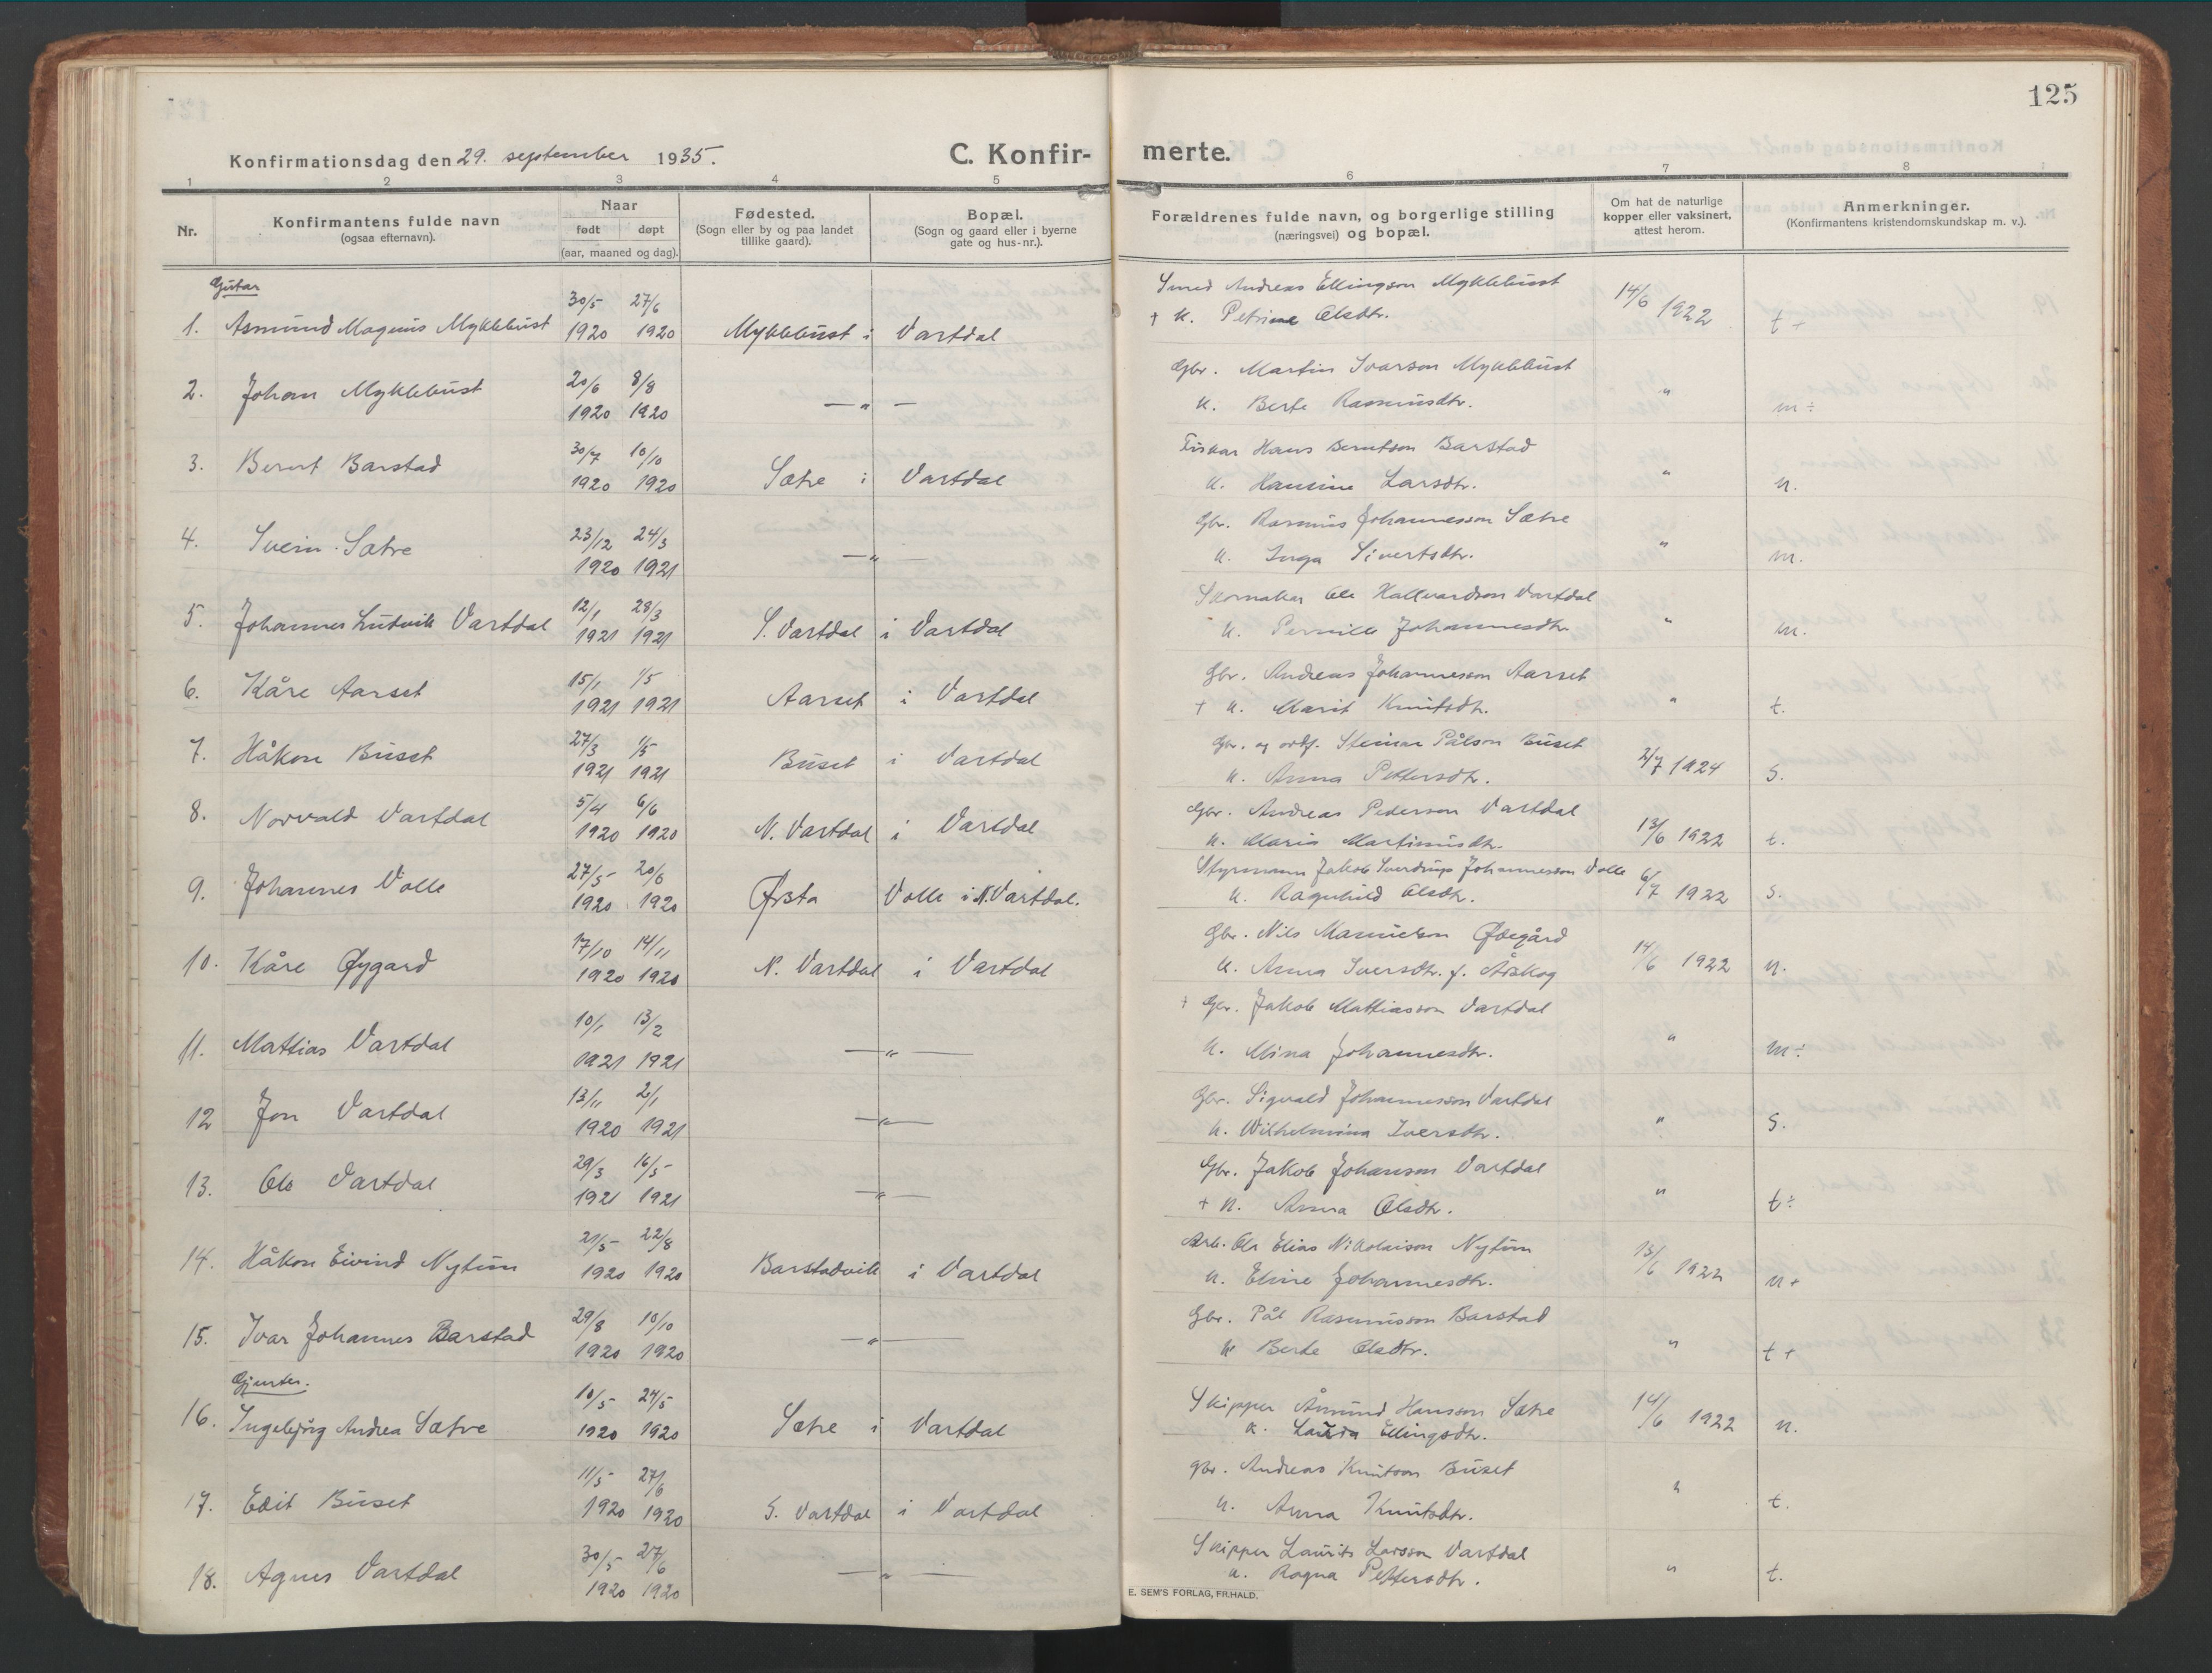 125
Konfirmationsdag den 29. september 1935.
C. Konfir-
merte.
1 2 3 4 5 6 7 8
Nr.
Konfirmantens fulde navn
(ogsaa efternavn).
Naar
født døpt
(aar, maaned og dag).
Fødested.
(Sogn eller by og paa landet
tillike gaard).
Bopæl.
(Sogn og gaard eller i byerne
gate og hus-nr.).
Forældrenes fulde navn, og borgerlige stilling
(næringsvei) og bopæl.
Om hat de naturlige
kopper eller vaksinert,
attest herom.
Anmerkninger.
(Konfirmantens kristendomskundskap m. v.).
Gutar
30/5 27/6 Smed Andreas Ellingson Myklebust 14/6 1922
1. Asmund Magnus Myklebust 1920 1920 Myklebust i Vartdal + k. Petrine Olsdtr. t +
20/6 8/8 Gbr. Martin Ivarson Myklebust
2. Johan Myklebust 1920 1920 — " — k. Berte Rasmusdtr. " m ÷
30/7 10/10 Fiskar Hans Berntson Barstad
3. Bernt Barstad 1920 1920 Sætre i Vartdal k. Hansine Larsdtr. " n.
23/12 24/3 Gbr. Rasmus Johannesson Sætre
4. Svein Sætre 1920 1921 — " — k. Inga Sivertsdtr. " m.
12/1 28/3 Skomakar Ole Hallvardson Vartdal
5. Johannes Ludvik Vartdal 1921 1921 S. Vartdal i Vartdal k. Pernille Johannesdtr. " m.
15/1 1/5 Gbr. Andreas Johannesson Aarset
6. Kåre Aarset 1921 1921 Aarset i Vartdal + k. Marit Knutsdtr. " t.
27/3 1/5 Gbr. og ordf. Steinar Pålson Buset
7. Håkon Buset 1921 1921 Buset i Vartdal k. Anna Pettersdtr. 2/7 1924 s.
5/4 6/6 Gbr. Andreas Pederson Vartdal
8. Norvald Vartdal 1920 1920 N. Vartdal i Vartdal k. Maria Martinusdtr. 13/6 1922 t.
27/5 20/6 Styrmann Jakob Sverdrup Johannesson Volle
9. Johannes Volle 1920 1920 Ørsta Volle i N. Vartdal. k. Ragnhild Olsdtr. 6/7 1922 s.
17/10 14/11 Gbr. Nils Ødegård
10. Kåre Øygard 1920 1920 N. Vartdal i Vartdal k. Anna Iversdtr. f. Årskog 14/6 1922 n.
10/1 13/2 + Gbr. Jakob Mattiasson Vartdal
11. Mattias Vartdal 1921 1921 — " — k. Mina Johannesdtr. " m ÷
13/11 2/1 Gbr. Sigvald Johannesson Vartdal
12 Jon Vartdal 1920 1921 — " — k. Wilhelmina Iversdtr. " s.
29/3 16/5 Gbr. Jakob Johanson Vartdal
13. Ole Vartdal 1921 1921 — " — + k. Anna Olsdtr. " t ÷
21/5 22/8 Arb. Ole Elias Nikolaison Nytun
14. Håkon Eivind Nytun 1920 1920 Barstadvik i Vartdal k. Eline Johannesdtr. 13/6 1922 n +
29/8 10/10 Gbr. Pål Rasmusson Barstad
15. Ivar Johannes Barstad 1920 1920 — " — k Berte Olsdtr. " t +
Gjenter.
10/5 24/5 Skipper Åsmund Hansson Sætre 14/6 1922
16. Ingebjørg Andrea Sætre 1920 1920 Sætre i Vartdal k. Laura Ellingsdtr. n.
11/5 27/6 gbr. Andreas Knutson Buset
17. Edit Buset 1920 1920 S. Vartdal i Vartdal k. Anna Knutsdtr. " t.
30/5 27/6 Skipper Laurits Larsson Vartdal
18. Agnes Vartdal 1920 1920 — " — k. Ragna Pettersdtr. " t.
E. SEM'S FORLAG, FR.HALD.